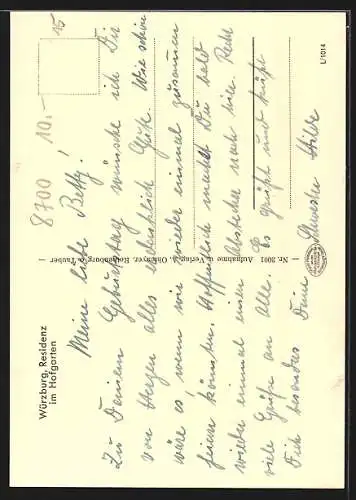 Würzburg, Residenz
im Hofgarten
8700 10.-
15
Meine liebe Betty!
Zu Deinem Geburtstag wünsche ich Dir
von Herzen alles erdenklich Gute. Wie schön
wäre es wenn wir wieder einmal zusammen
feiern könnten. Hoffentlich machst Du bald
wieder einmal einen Abstecher nach hier. Recht
viele Grüße an alle. Es grüßt und küßt
Dich besonders Deine Schwester Hilde
Nr. 3001 Aufnahme u. Verlag: A. Ohmayer, Rothenburg o. Tauber
L/1014